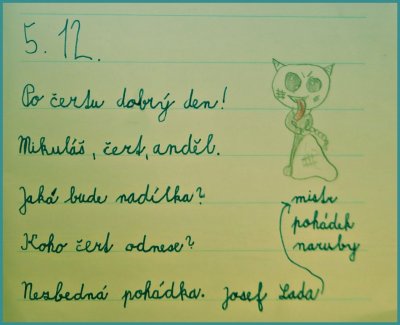 5. 12.
Po čertu dobrý den!
Mikuláš, čert, anděl.
Jaká bude nadílka?
Koho čert odnese?
Nezbedná pohádka. Josef Lada
mistr
pohádek
naruby